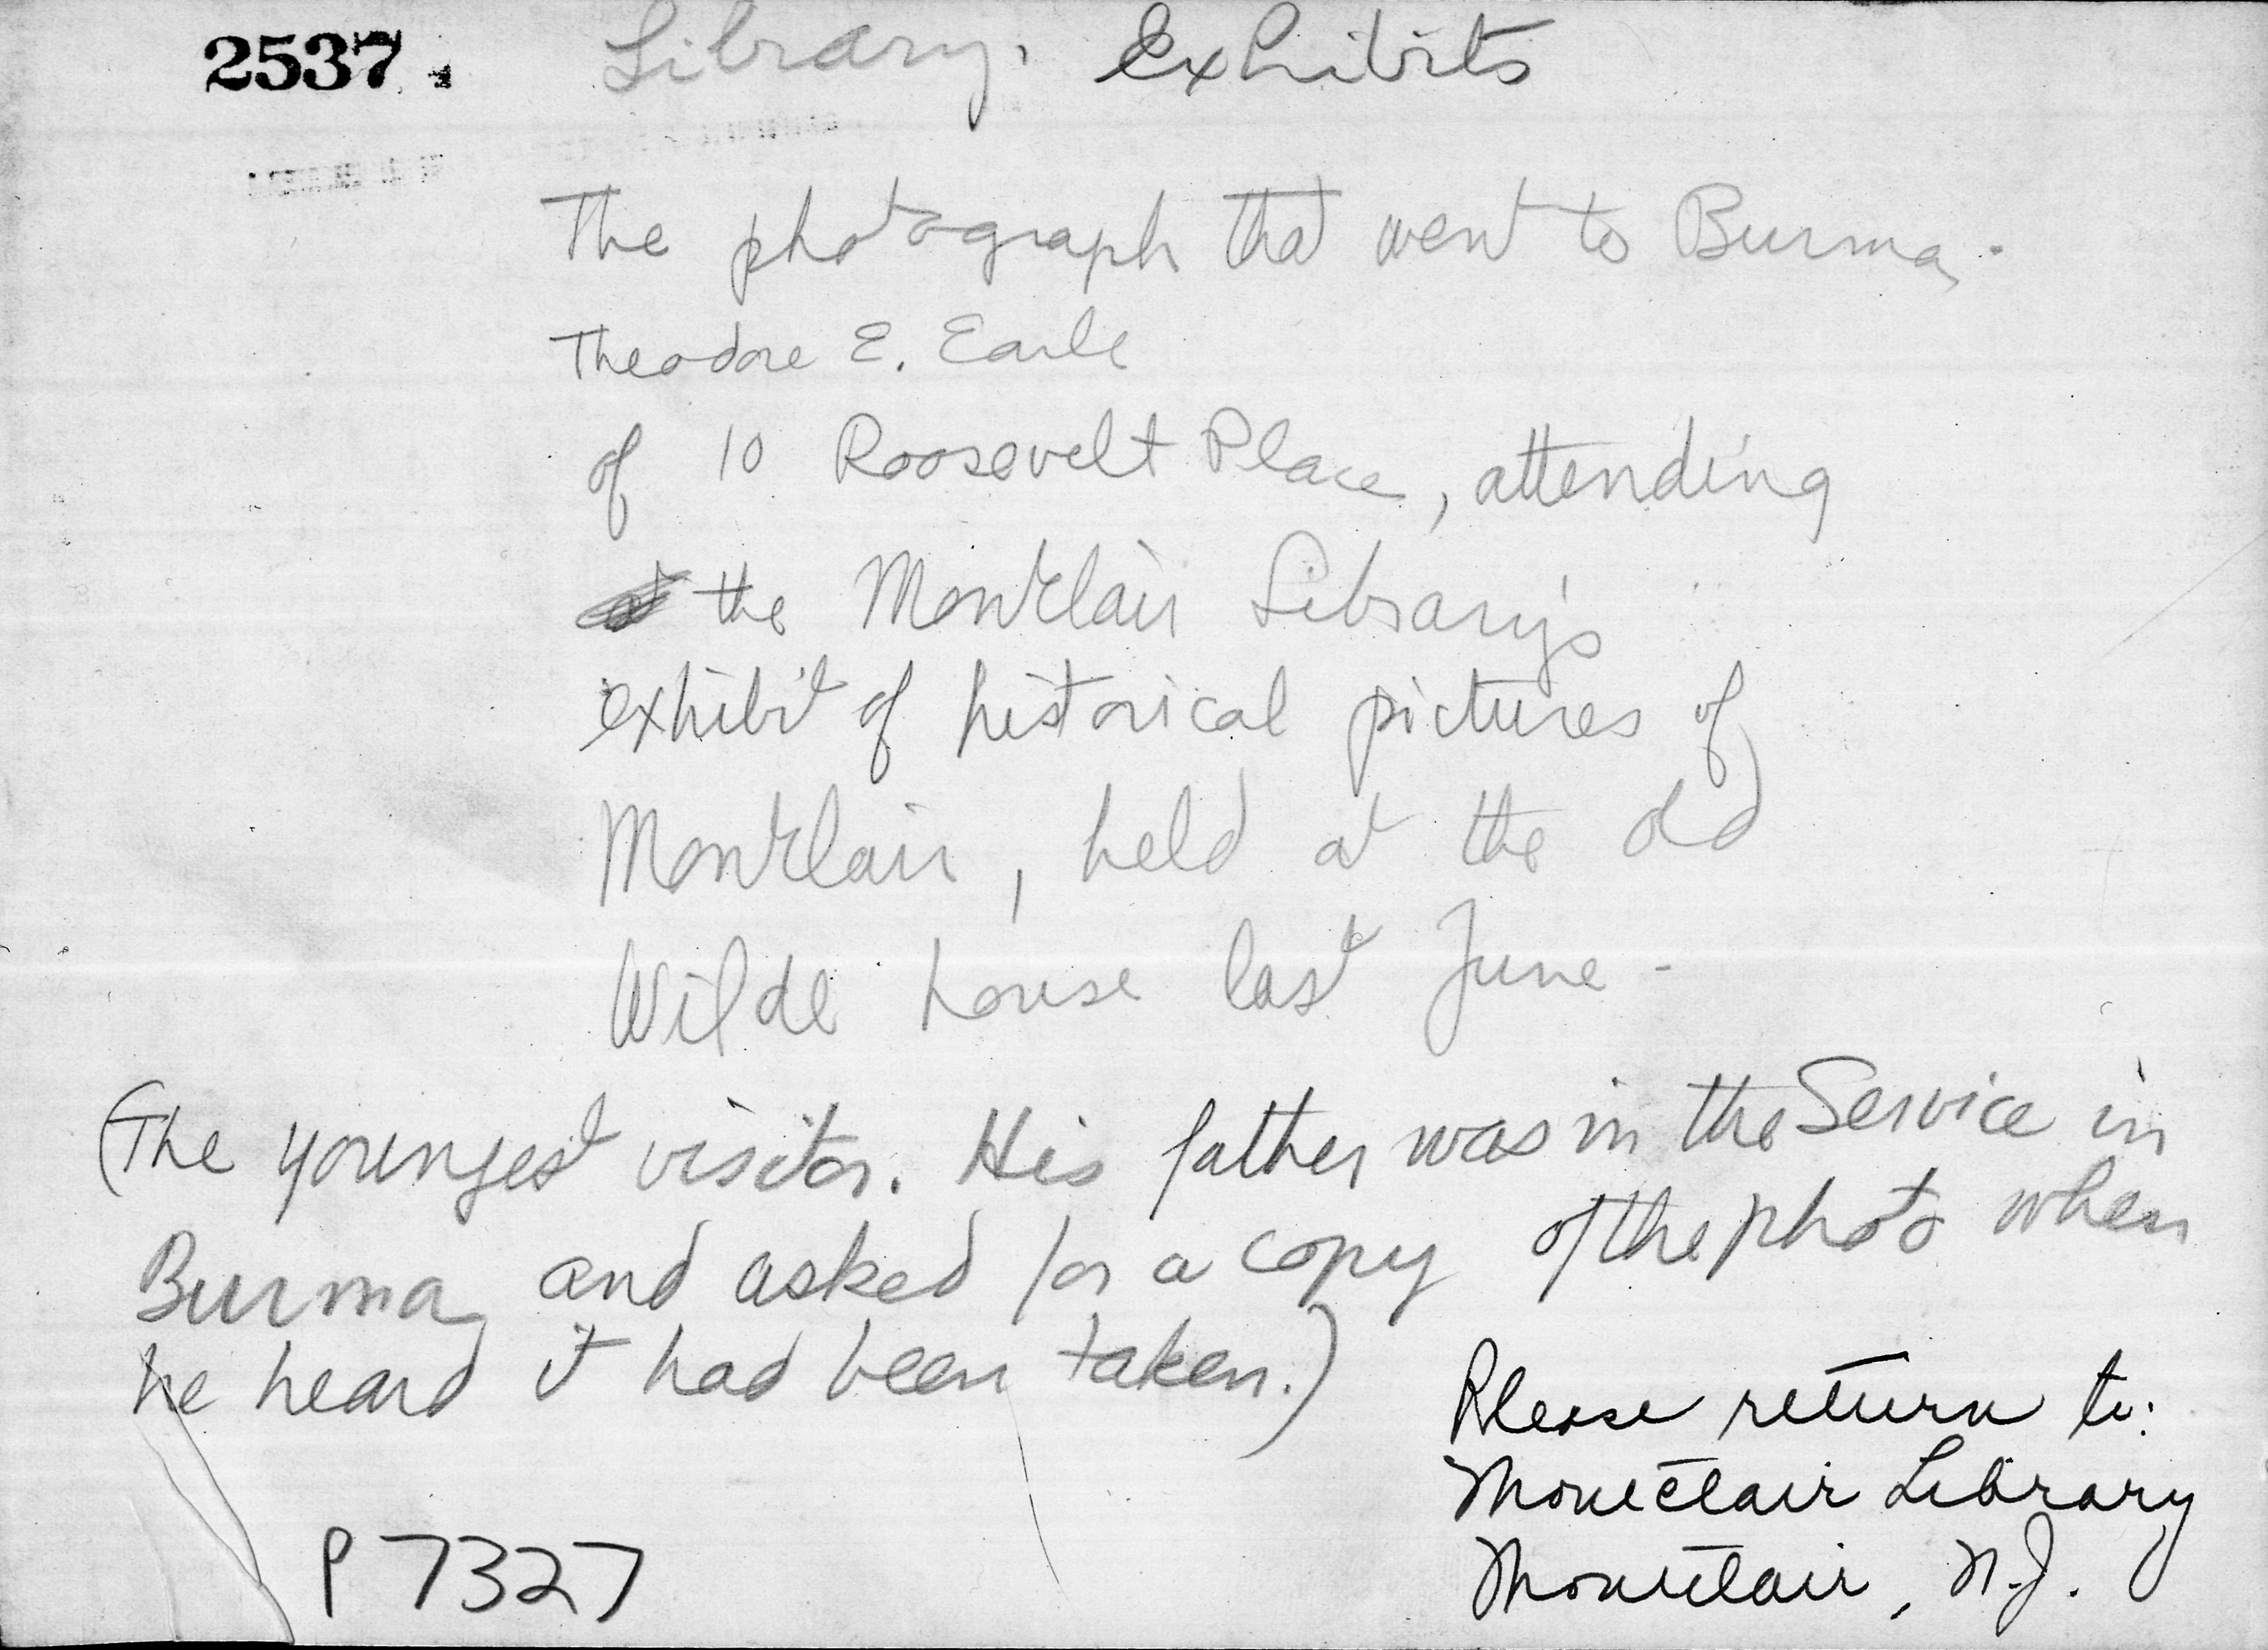 2537
Library. Exhibits
The photograph that went to Burma.
Theodore E. Earle
of 10 Roosevelt Place, attending
the Montclair Library's
exhibit of historical pictures of
Montclair, held at the old
Wilde house last June.
(The youngest visitor. His father was in the Service in
Burma, and asked for a copy of the photo when
he heard it had been taken.)
Please return to:
Montclair Library
Montclair, N.J.
P 7327